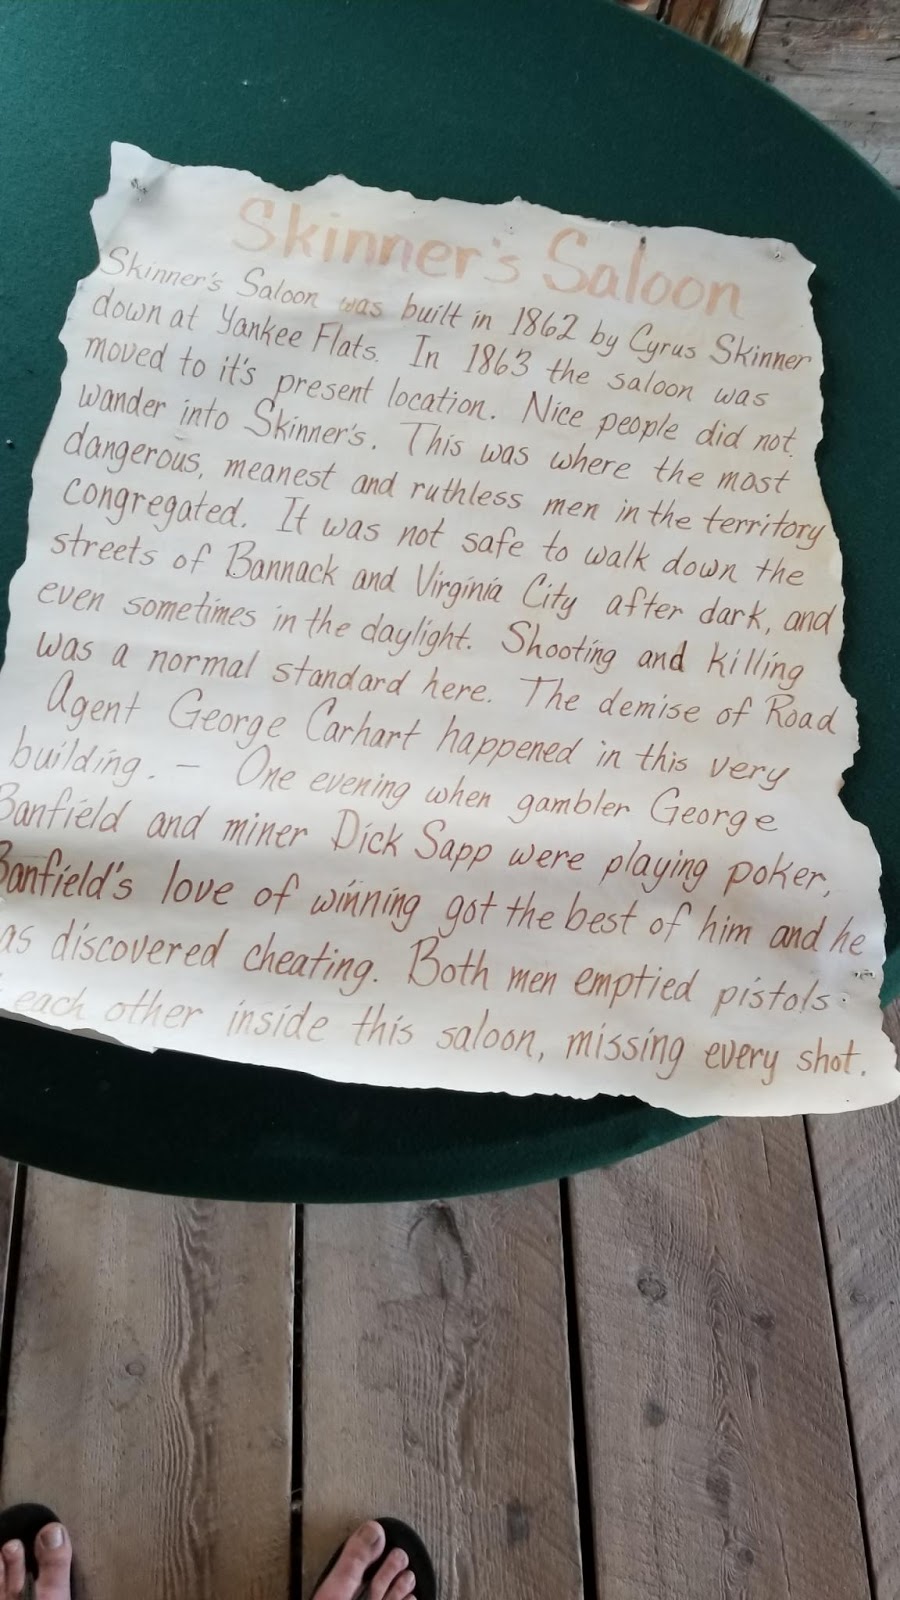 Skinner's Saloon
Skinner's Saloon was built in 1862 by Cyrus Skinner
down at Yankee Flats. In 1863 the saloon was
moved to it's present location. Nice people did not
wander into Skinner's. This was where the most
dangerous, meanest and ruthless men in the territory
congregated. It was not safe to walk down the
streets of Bannack and Virginia City after dark, and
even sometimes in the daylight. Shooting and killing
was a normal standard here. The demise of Road
Agent George Carhart happened in this very
building. — One evening when gambler George
Banfield and miner Dick Sapp were playing poker,
Banfield's love of winning got the best of him and he
as discovered cheating. Both men emptied pistols
each other inside this saloon, missing every shot.